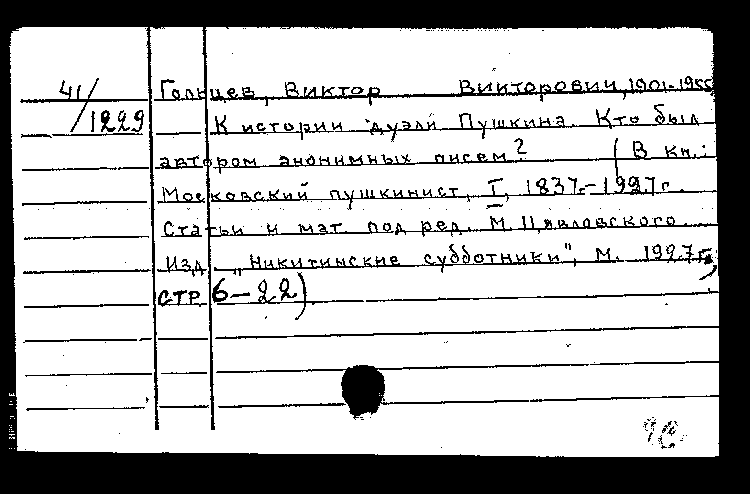 41/1229
Гольцев, Виктор Викторович, 1901-1955
К истории дуэли Пушкина. Кто был
автором анонимных писем? (В кн.:
Московский пушкинист, I, 1837г.-1927г.
Статьи и мат. под ред. М. Цявловского.
Изд. „Никитинские субботники", М. 1927г.,
стр. 6-22).